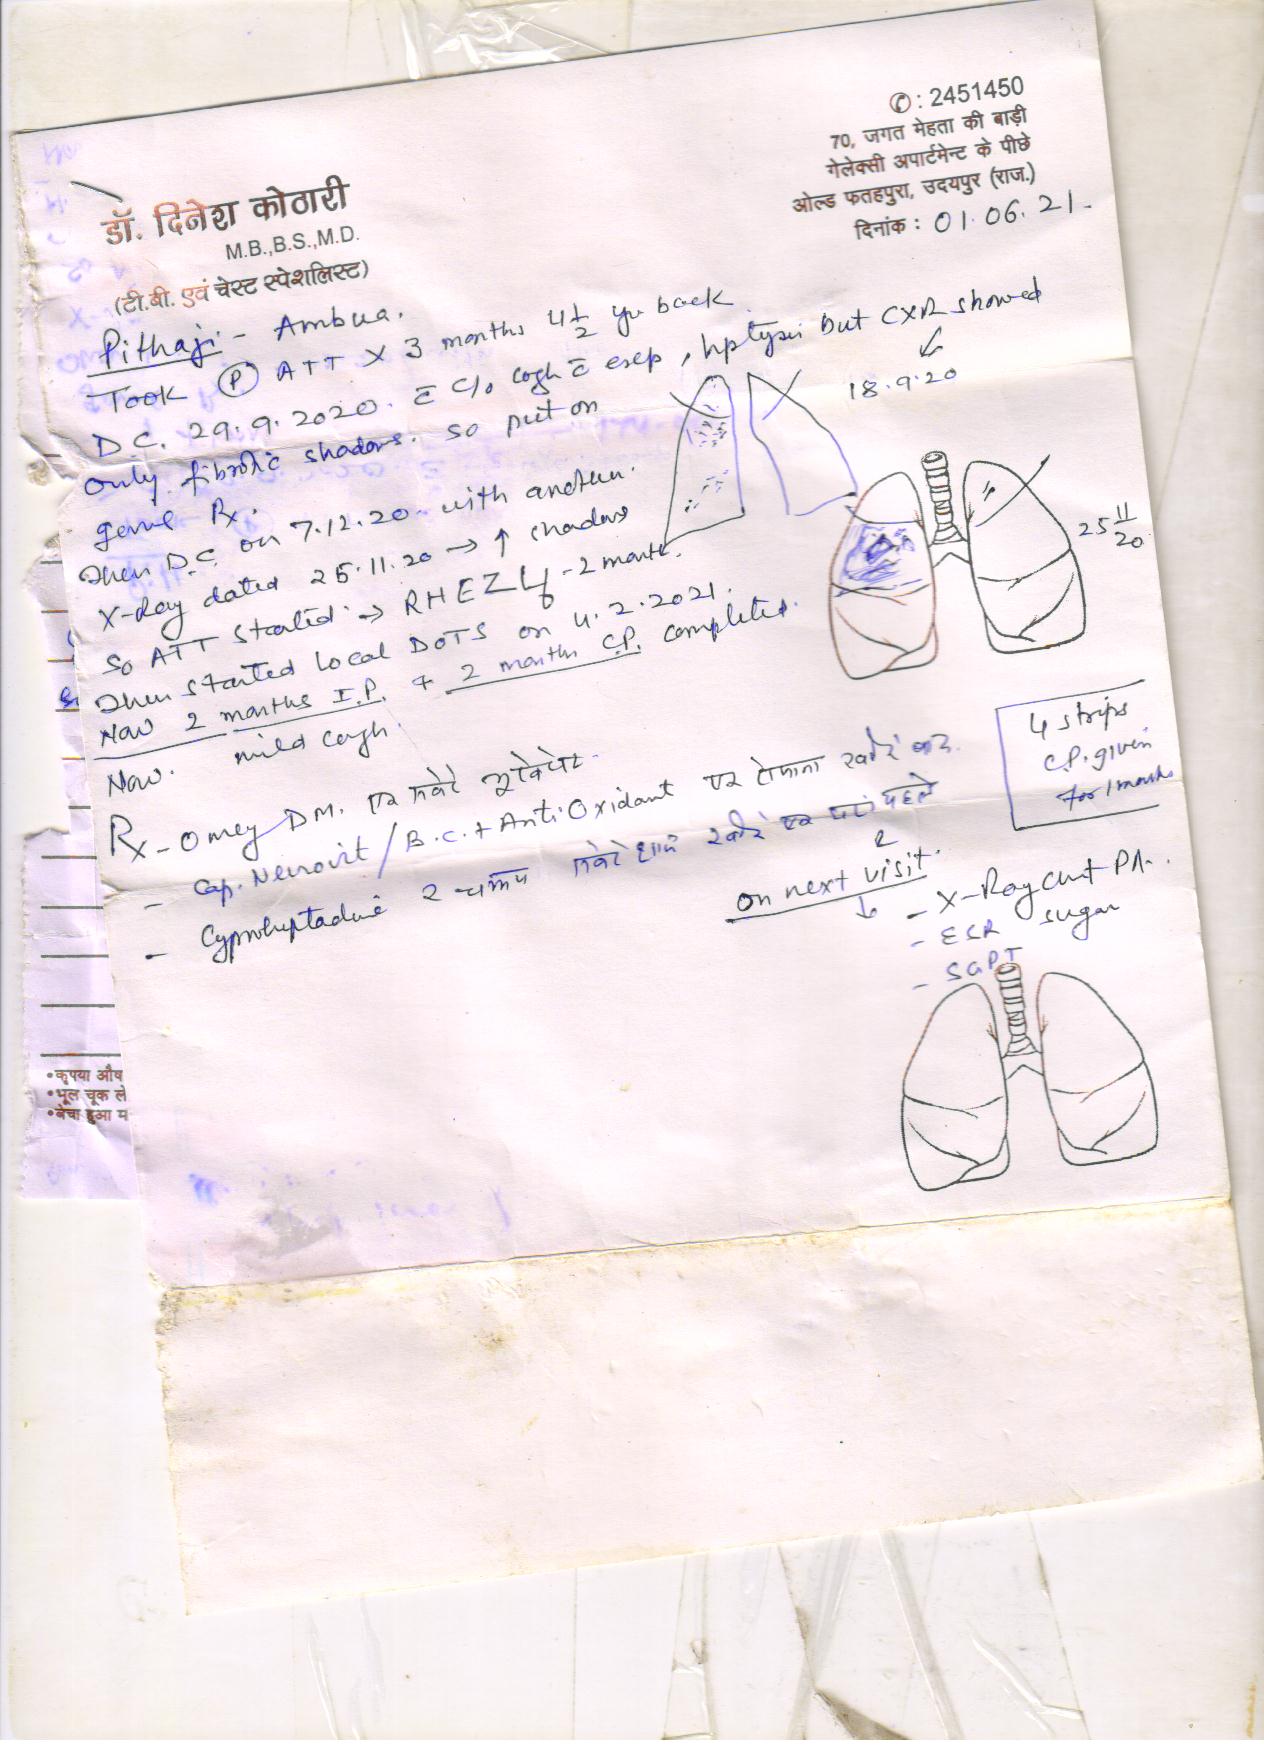 ✆: 2451450
70, जगत मेहता की बाड़ी
गेलेक्सी अपार्टमेन्ट के पीछे
ओल्ड फतहपुरा, उदयपुर (राज.)
दिनांक : 01.06.21.
डॉ. दिनेश कोठारी
M.B.,B.S.,M.D.
(टी.बी. एवं चेस्ट स्पेशलिस्ट)
Pithaji - Ambua.
Took (P) ATT X 3 months 4½ yr back
D.C. 29.9.2020. c̄ c/o cogh c̄ exep, hptysis but CXR showed
18.9.20
only fibrotic shadows. so put on
genl Rx.
Then D.C. on 7.12.20 with another
X-Ray dated 25.11.20 → ↑ shadows
25 11/20
So ATT started → RHEZ - 2 month.
Then started local DOTS on 4.2.2021.
Now 2 months I.P. + 2 months C.P. completed.
Now. mild cough.
4 strips
C.P. given
for 1 month
Rx - Omey DM. एक सवेरे
- Cap. Neurovit / B.C. + Anti Oxidant एक रोजाना
- Cyproheptadine 2 चम्मच सवेरे शाम
on next visit.
↓
- X-Ray chest PA.
- ESR sugar
- SGPT
•कृपया औष
•भूल चूक ले
•बेचा हुआ म